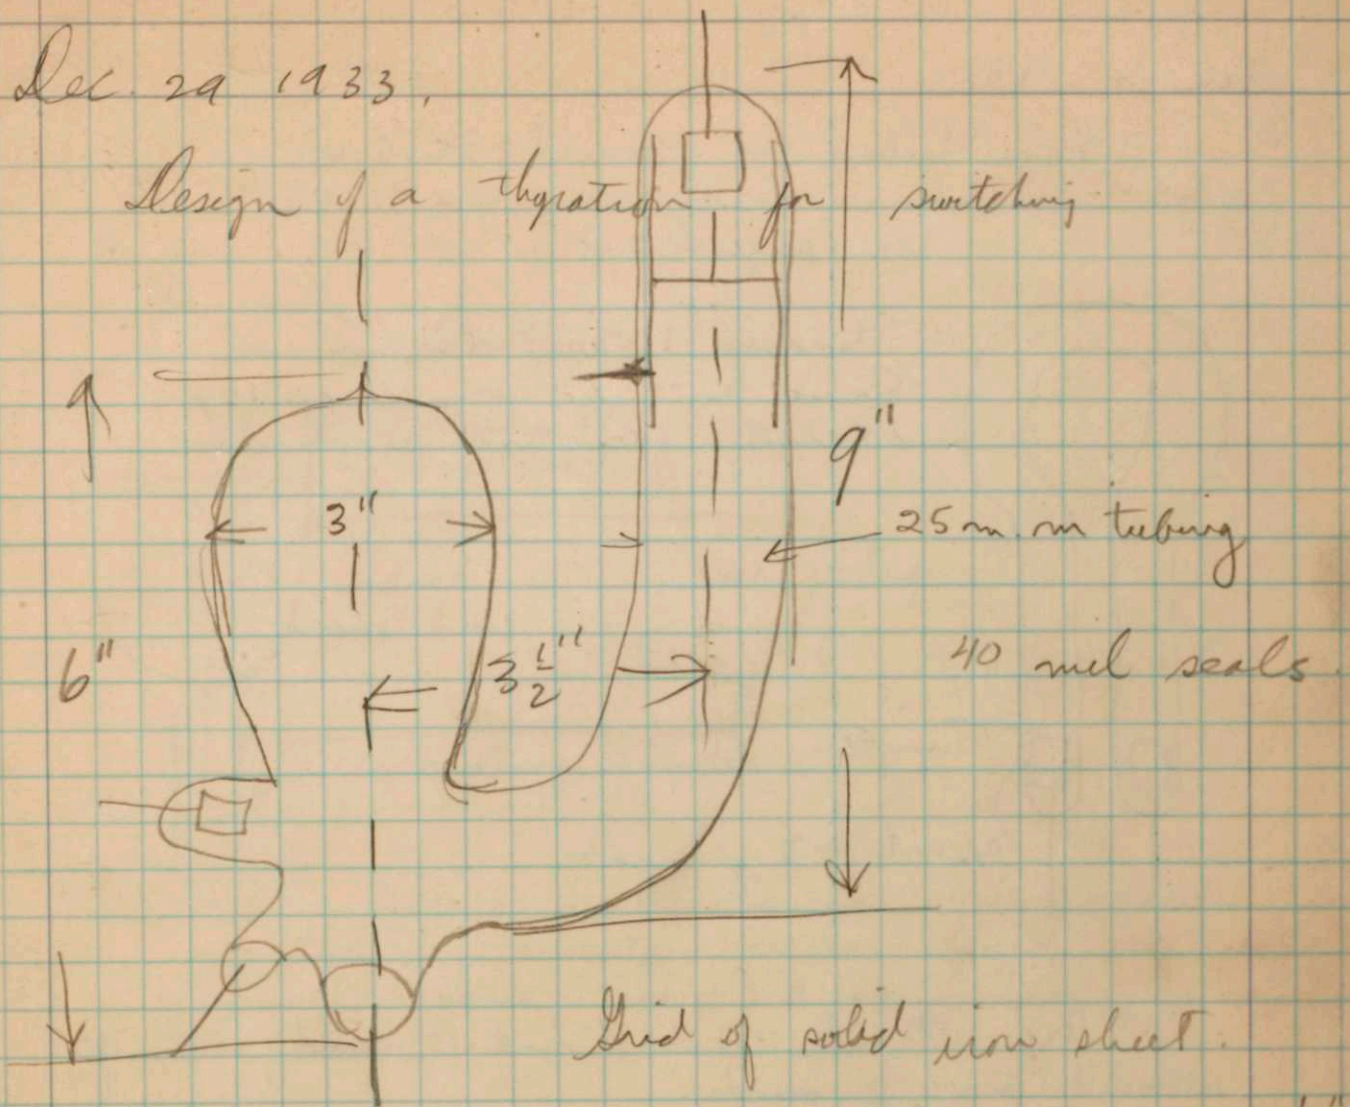 Dec. 29 1933.
Design of a thyratron for switching
9"
3"
25 m.m tubing
3 1/2"
6"
40 mil seals.
Grid of solid iron sheet.